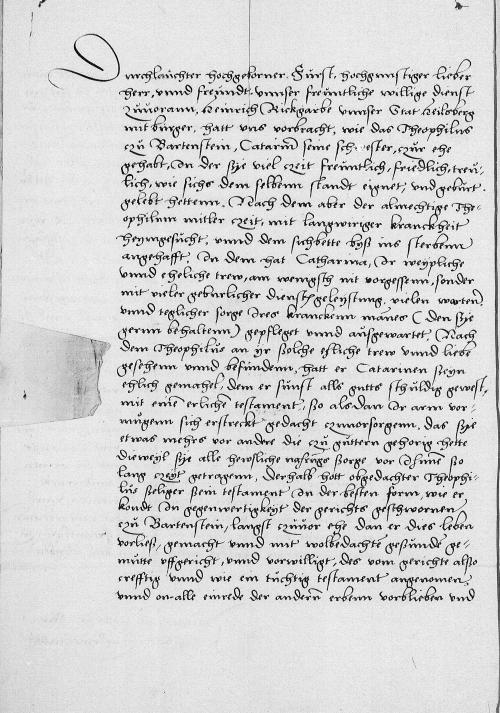 Durchlauchter hochgeborner Fürst, hochgunstiger lieber
herr, unnd freundt, unnser freuntliche willige dienst
zuuorann, Heinrich Rickgarbe unnser Stat Heilsberg
mitburger, hatt uns vorbracht, wie das Theophilus
czu Bartenstein, Catarina seine schwester, czur ehe
gehabt, In der sye viel czeit freuntlich, friedlich, treu-
lich, wie sichs dem selbenn standt eignet, und geburt
gelebt hettenn. Nach dem aber der almechtige The-
ophilum mitler czeit, mit langwiriger kranckheit
heymgesucht, unnd dem sichbette byß ins sterbenn
angehafft, In dem hat Catharina, Ir weypliche
unnd eheliche trew, am wenigsth nit vorgessenn, sonder
mit vieler geburlicher dienst geleystung, vielen warten,
unnd teglicher sorge Ires kranckenn mannes (den sye
gernn behaltenn) gepfleget unnd aufgewartet, Nach
dem Theophilus an yr solche ehliche trew unnd liebe
gesehenn unnd befundenn, hatt er Catarinen seyn
ehlich gemachel, dem er sunst alls gutts schuldig gewest,
mit eine erlichen testament, so als dan Ir arm vor-
mugenn sich erstreckt gedacht czuuorsorgenn, das sye
etwas mehrs vor andre die czu guttern gehorig hette
dieweyl sye alle hewsliche sorge vor Ihme so
lang czeyt getragenn, derhalb hott obgedachter Theophi-
lus seliger sein testament In der besten form, wie er
kondt In gegenwertigkeyt der gerichts geschwornen
czu Bartenstein, langst czuuor ehe dan er dies leben
vorließ, gemacht unnd mit wolbedachte gesunde ge-
mutte uffgericht, unnd vorwilligt, des vom gerichte also
crefftig unnd wie ein tuchtig testament angenomen,
unnd on alle einrede der andern erbenn vorblieben und